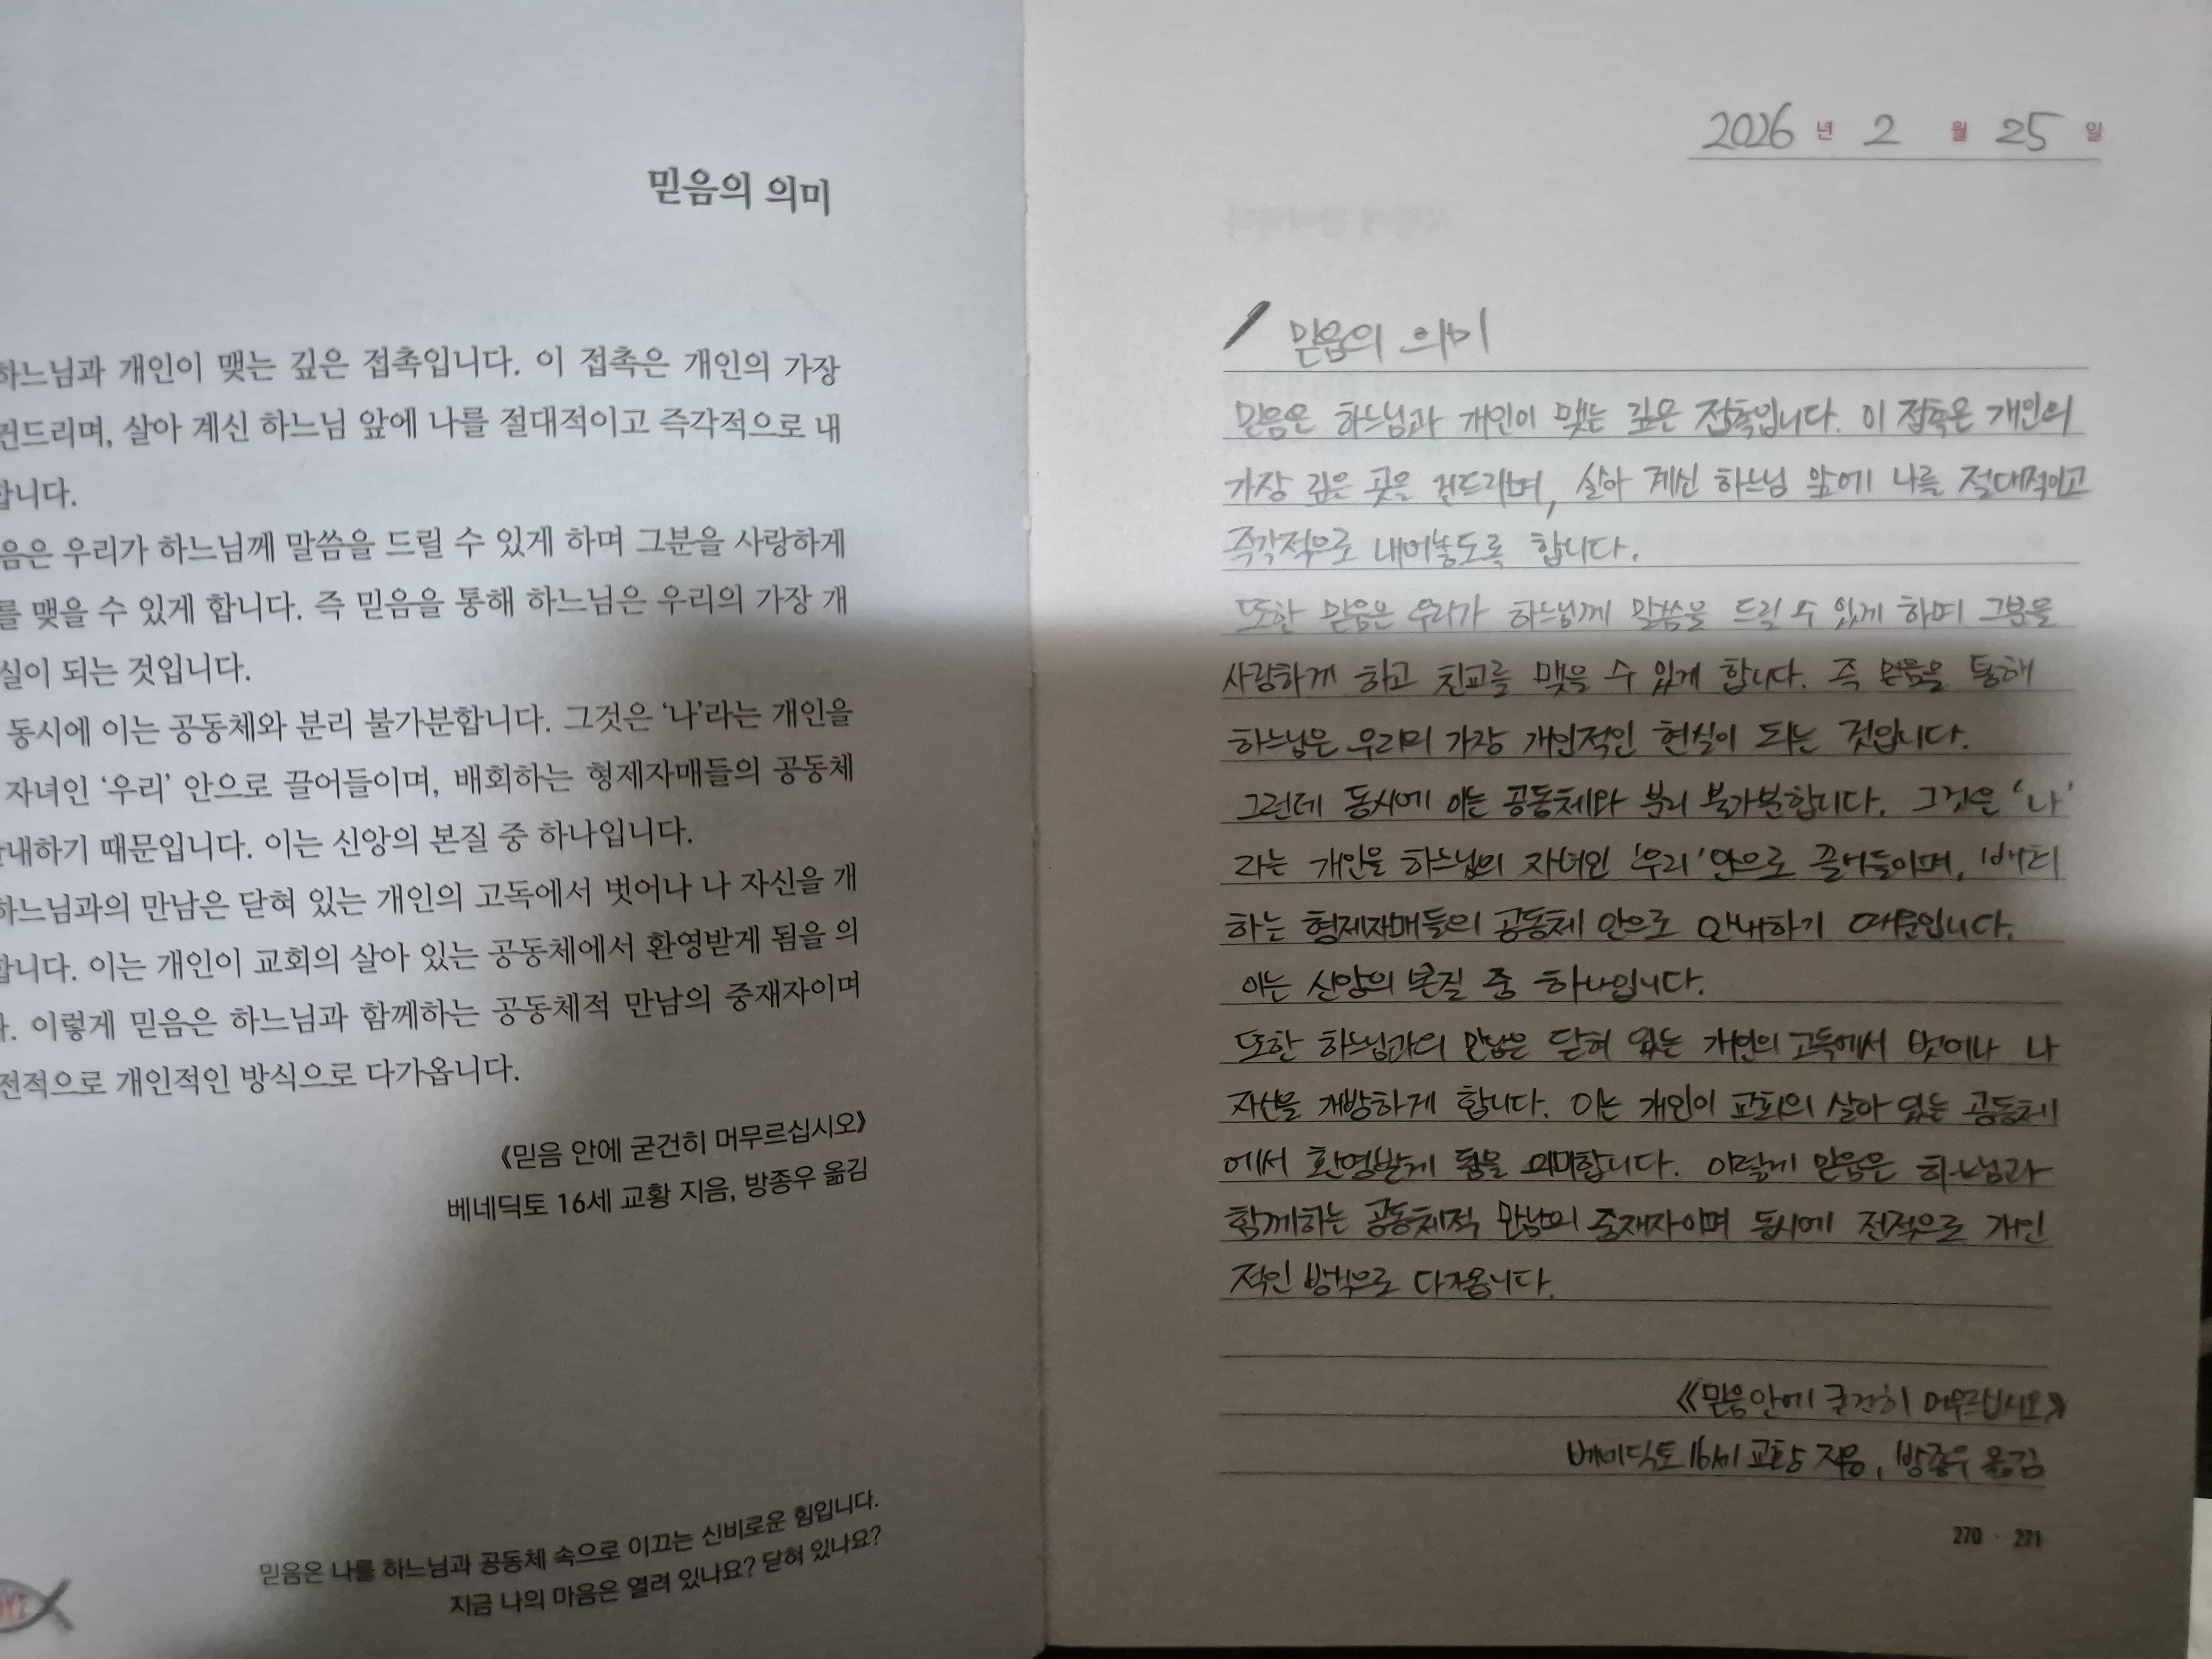 믿음의 의미
하느님과 개인이 맺는 깊은 접촉입니다. 이 접촉은 개인의 가장
건드리며, 살아 계신 하느님 앞에 나를 절대적이고 즉각적으로 내
합니다.
음은 우리가 하느님께 말씀을 드릴 수 있게 하며 그분을 사랑하게
를 맺을 수 있게 합니다. 즉 믿음을 통해 하느님은 우리의 가장 개
실이 되는 것입니다.
동시에 이는 공동체와 분리 불가분합니다. 그것은 ‘나’라는 개인을
자녀인 ‘우리’ 안으로 끌어들이며, 배회하는 형제자매들의 공동체
내하기 때문입니다. 이는 신앙의 본질 중 하나입니다.
하느님과의 만남은 닫혀 있는 개인의 고독에서 벗어나 나 자신을 개
합니다. 이는 개인이 교회의 살아 있는 공동체에서 환영받게 됨을 의
다. 이렇게 믿음은 하느님과 함께하는 공동체적 만남의 중재자이며
전적으로 개인적인 방식으로 다가옵니다.
《믿음 안에 굳건히 머무르십시오》
베네딕토 16세 교황 지음, 방종우 옮김
믿음은 나를 하느님과 공동체 속으로 이끄는 신비로운 힘입니다.
지금 나의 마음은 열려 있나요? 닫혀 있나요?
2026 년 2 월 25 일
믿음의 의미
믿음은 하느님과 개인이 맺는 깊은 접촉입니다. 이 접촉은 개인의
가장 깊은 곳을 건드리며, 살아 계신 하느님 앞에 나를 절대적이고
즉각적으로 내어놓도록 합니다.
또한 믿음은 우리가 하느님께 말씀을 드릴 수 있게 하며 그분을
사랑하게 하고 친교를 맺을 수 있게 합니다. 즉 믿음을 통해
하느님은 우리의 가장 개인적인 현실이 되는 것입니다.
그런데 동시에 이는 공동체와 분리 불가분합니다. 그것은 ‘나’
라는 개인을 하느님의 자녀인 ‘우리’ 안으로 끌어들이며, 배회
하는 형제자매들의 공동체 안으로 안내하기 때문입니다.
이는 신앙의 본질 중 하나입니다.
또한 하느님과의 만남은 닫혀 있는 개인의 고독에서 벗어나 나
자신을 개방하게 합니다. 이는 개인이 교회의 살아 있는 공동체
에서 환영받게 됨을 의미합니다. 이렇게 믿음은 하느님과
함께하는 공동체적 만남의 중재자이며 동시에 전적으로 개인
적인 방식으로 다가옵니다.
《믿음 안에 굳건히 머무르십시오》
베네딕토 16세 교황 지음, 방종우 옮김
270 · 271